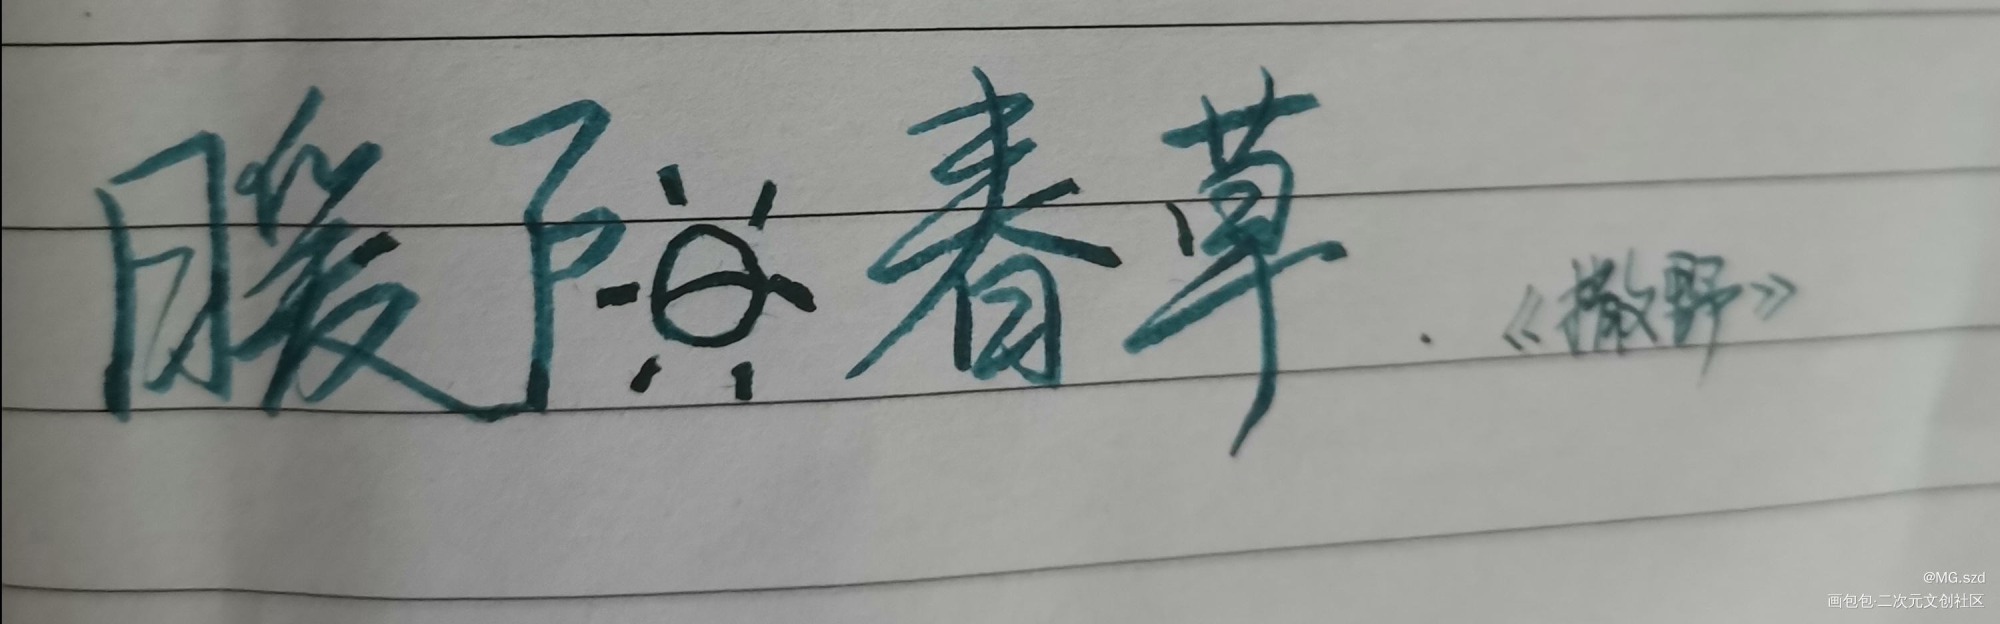 暖阳春草
《撒野》
@MG.szd
画包包·二次元文创社区